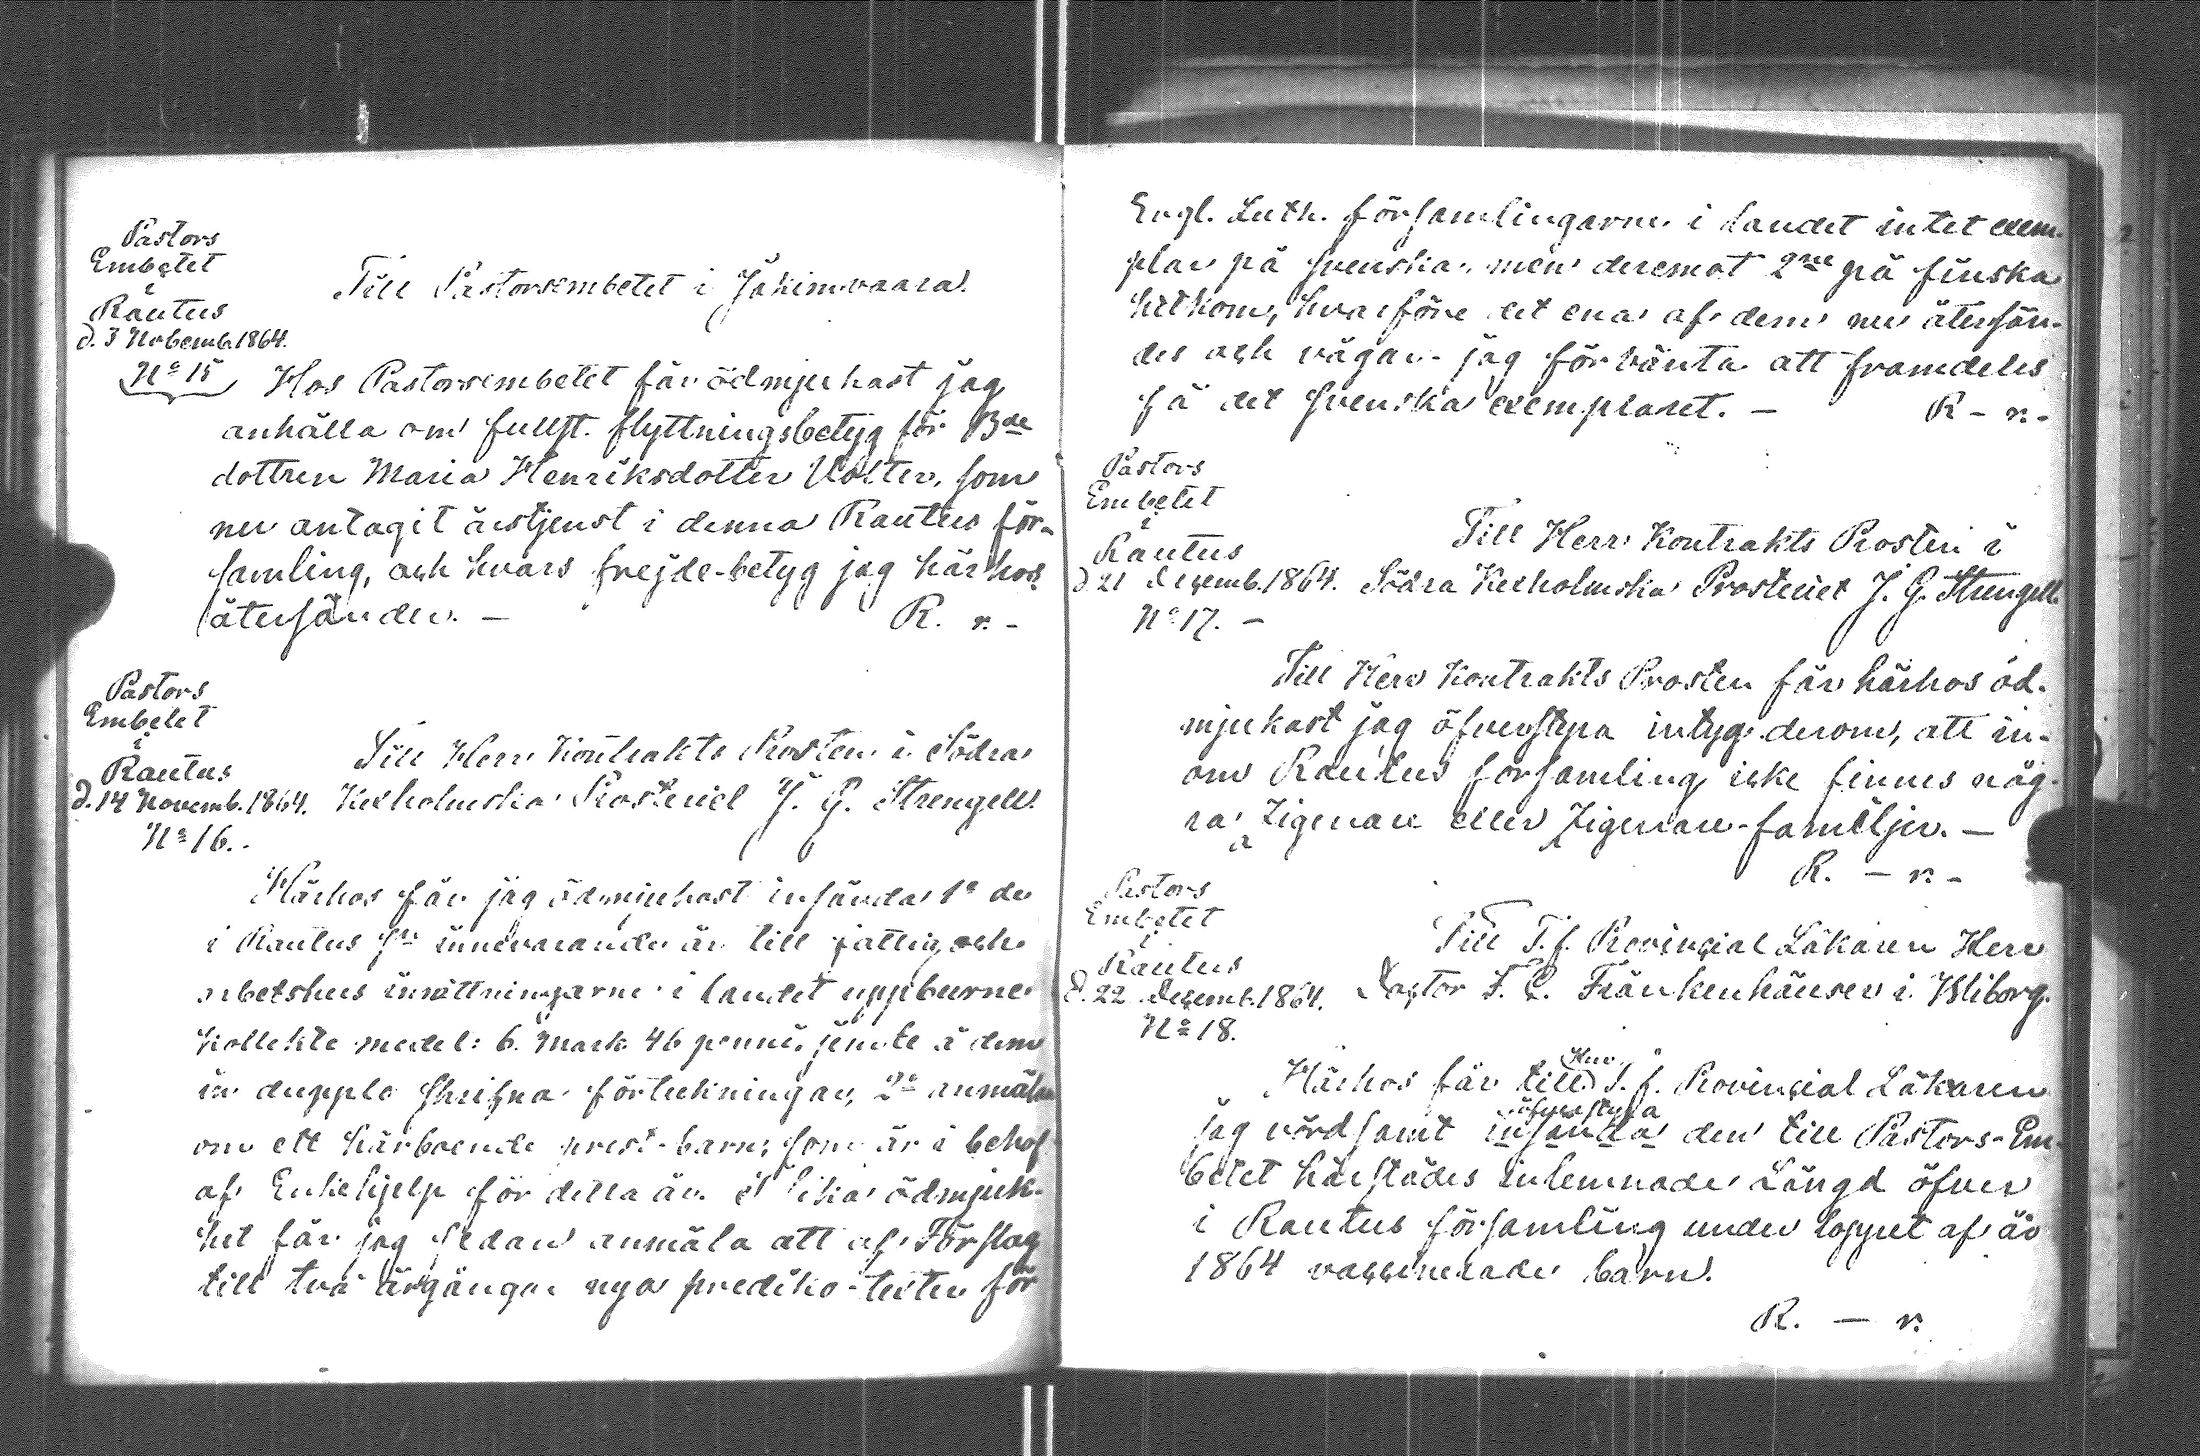 Pastors
Embetet
i
Rautus
d. 3 Novemb. 1864.
No 15
Till Pastorsembetet i Jakimvaara.
Hos Pastorsembetet får ödmjukast jag
anhålla om fullst. flyttningsbetyg för Bde
dottren Maria Henriksdotter Wolter, som
nu antagit årstjenst i denna Rautus för-
samling, och hvars frejde-betyg jag härhos
återsänder. —
R. n. -
Pastors
Embetet
i
Rautus
d. 14 Novemb. 1864.
No 16.
Till Herr Kontrakts Prosten i Södra
Kexholmska Prosteriet J. G. Strengell.
Härhos får jag ödmjukast insända 1o de
i Rautus för innevarande år till fattig och
arbetshus inrättningarne i landet uppburne
Kollekte medel: 6. Mark 46 penni, jemte å dem
in dupplo skrifna förteckningar, 2o anmälan
om ett härboende prest-barn, som är i behof
af Enkehjelp för detta år. I lika ödmjuk-
het får jag sedan anmäla att af Förslag
till två årgångar nya prediko-texter för
Evgl. Luth. församlingarne i landet intet exem-
plar på svenska, men deremot 2ne på finska
hitkom, hvarföre det ena af dem nu återsän-
des och vågar jag förvänta att framdeles
få det svenska exemplaret. —
R - n. -
Pastors
Embetet
i
Rautus
d 21 Dezemb. 1864.
No 17. —
Till Herr Kontrakts Prosten i
Södra Kexholmska Prosteriet J. G. Strengell.
Till Herr Kontrakts Prosten får härhos öd-
mjukast jag öfverstyra intyg derom, att in-
om Rautus församling icke finnes någ-
ra Zigenare eller Zigenare-familjer. —
R. — n. -
Pastors
Embetet
i
Rautus
d. 22 Dezemb. 1864.
No 18.
Till T. f. Provinçial Läkaren Herr
Doctor F. E. Fränkenhäuser i Wiborg.
Härhos får till Herr T. f. Provinçial Läkaren
öfverstyra
jag vördsamt insända den till Pastors-Em-
betet härstädes inlemnade Längd öfver
i Rautus församling under loppet af år
1864 vaccinerade barn.
R. — n.